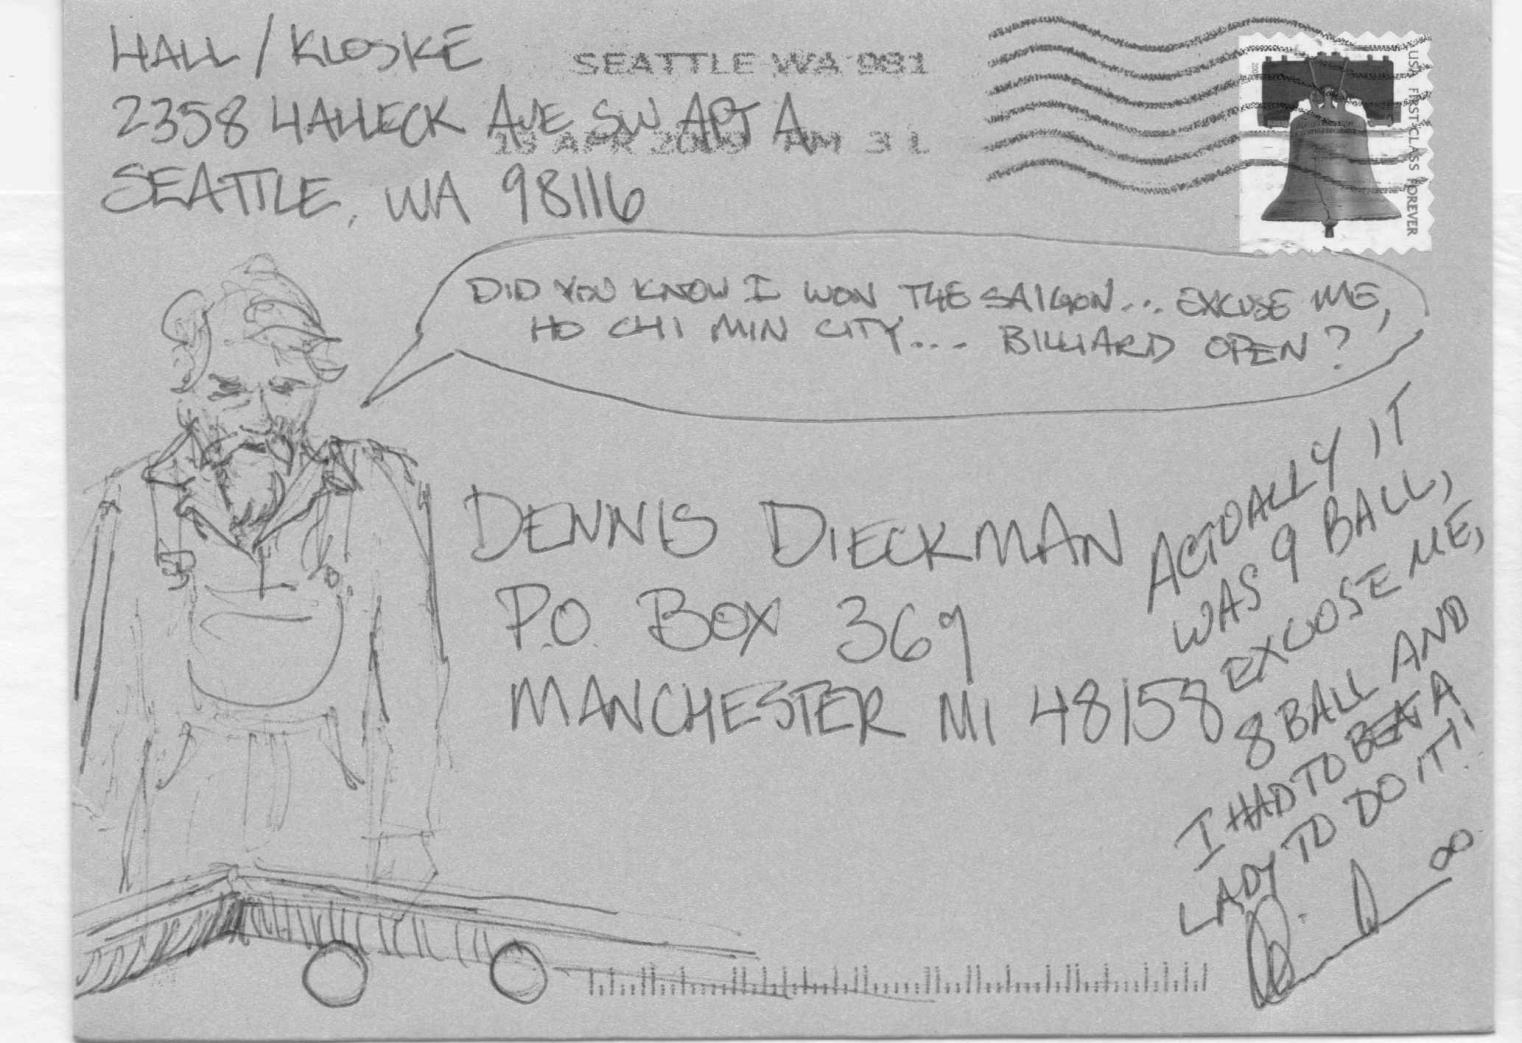 HALL / KLOSKE
2358 HALLECK AVE SW APT A
SEATTLE, WA 98116
SEATTLE WA 981
APR PM 3 L
USA FIRST-CLASS FOREVER
DID YOU KNOW I WON THE SAIGON... EXCUSE ME,
HO CHI MIN CITY.... BILLIARD OPEN?
DENNIS DIECKMAN
P.O. BOX 369
MANCHESTER MI 48158
ACTUALLY IT
WAS 9 BALL,
EXCUSE ME,
8 BALL AND
I HAD TO BEAT A
LADY TO DO IT!!